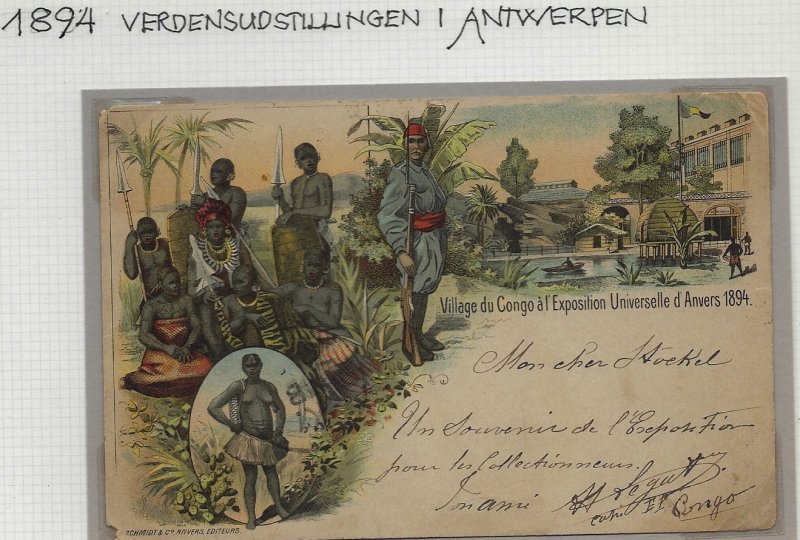 1894 VERDENSUDSTILLINGEN I ANTWERPEN
Village du Congo à l'Exposition Universelle d'Anvers 1894.
Mon cher Stockel
Un Souvenir de l'Exposition
pour les Collectionneurs.
Ton ami
Congo
SCHMIDT & Co ANVERS, EDITEURS.